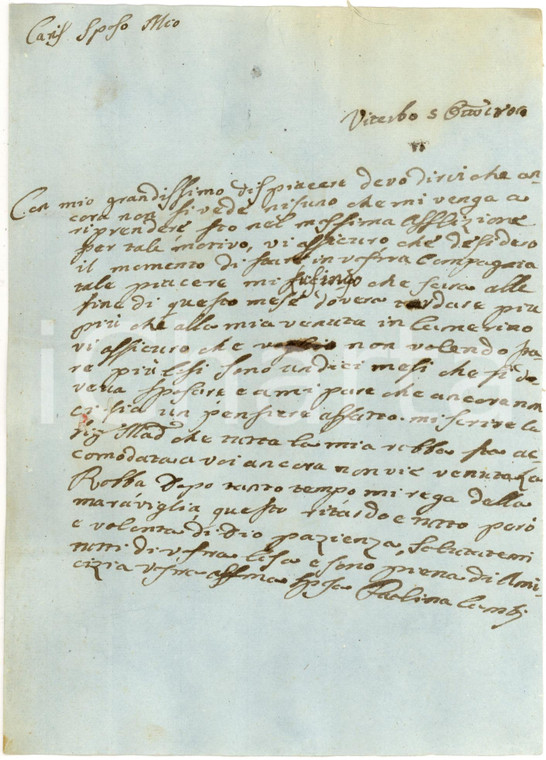 Caris Sposo Mio
Viterbo 5 Ottobre
Con mio grandissimo dispiacere devo dirvi che an-
cora non si vede nisuno che mi venga a
riprendere sto nel massima Afflizione
per tale motivo, vi assicuro che desidero
il momento di stare in vostra Compagnia
tale piacere mi lusingo che sara alle
fine di questo mese dovera tardare piu
piu che alla mia venuta in Camerino
vi assicuro che non volando sta
re piu cosi sono undici mesi che si do
veva sposare e a mi pare che ancora non
ci sia un pensiere affatto. mi scrive la
Sig Mad che tutta la mia robba sta ac
comodata a voi ancora non vi e venuta la
Robba dopo tanto tempo mi rega della
maraviglia questo ritardo e tutto pero
e volonta di Dio pazienza, Salutatemi
tutti di vostra Casa e sono piena di Ami
cizia vstra affma Sposa Paolina
icharta